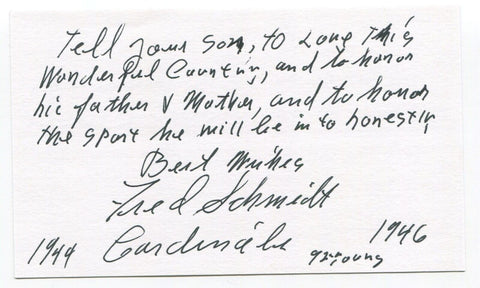 Tell your son, to Love this
Wonderful Country, and to honor
his father & Mother, and to honor
the sport he will be in to honestly
Best Wishes
Fred Schmidt
1944 Cardinals 1946
92 young